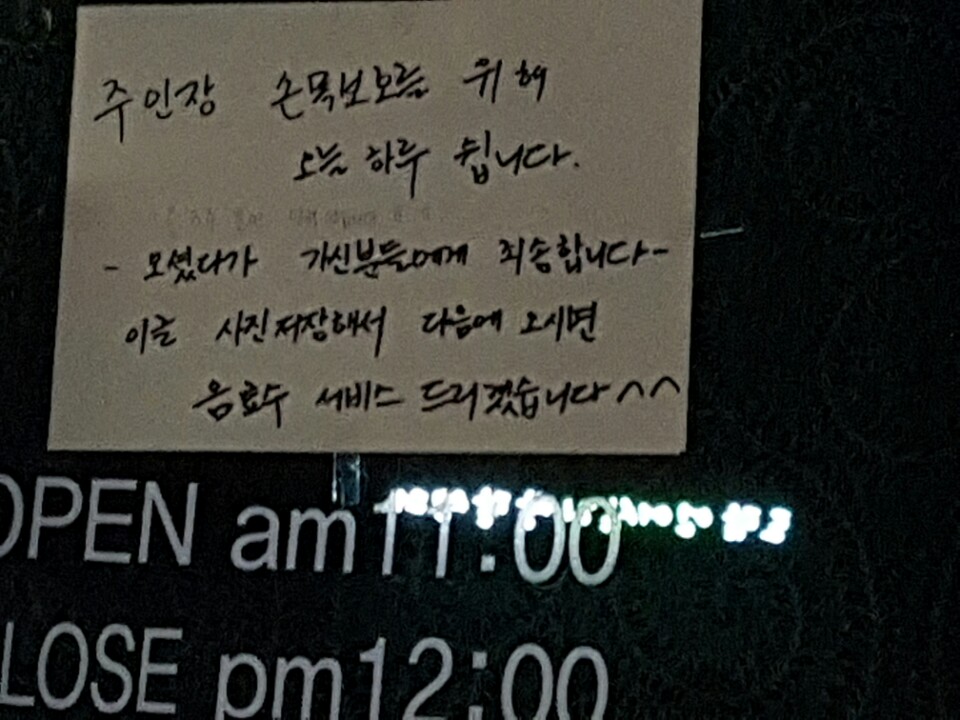 주인장 손목보호를 위해
오늘 하루 쉽니다.
- 오셨다가 가신분들에게 죄송합니다-
이글 사진저장해서 다음에 오시면
음료수 서비스 드리겠습니다^^
OPEN am11:00
CLOSE pm12:00